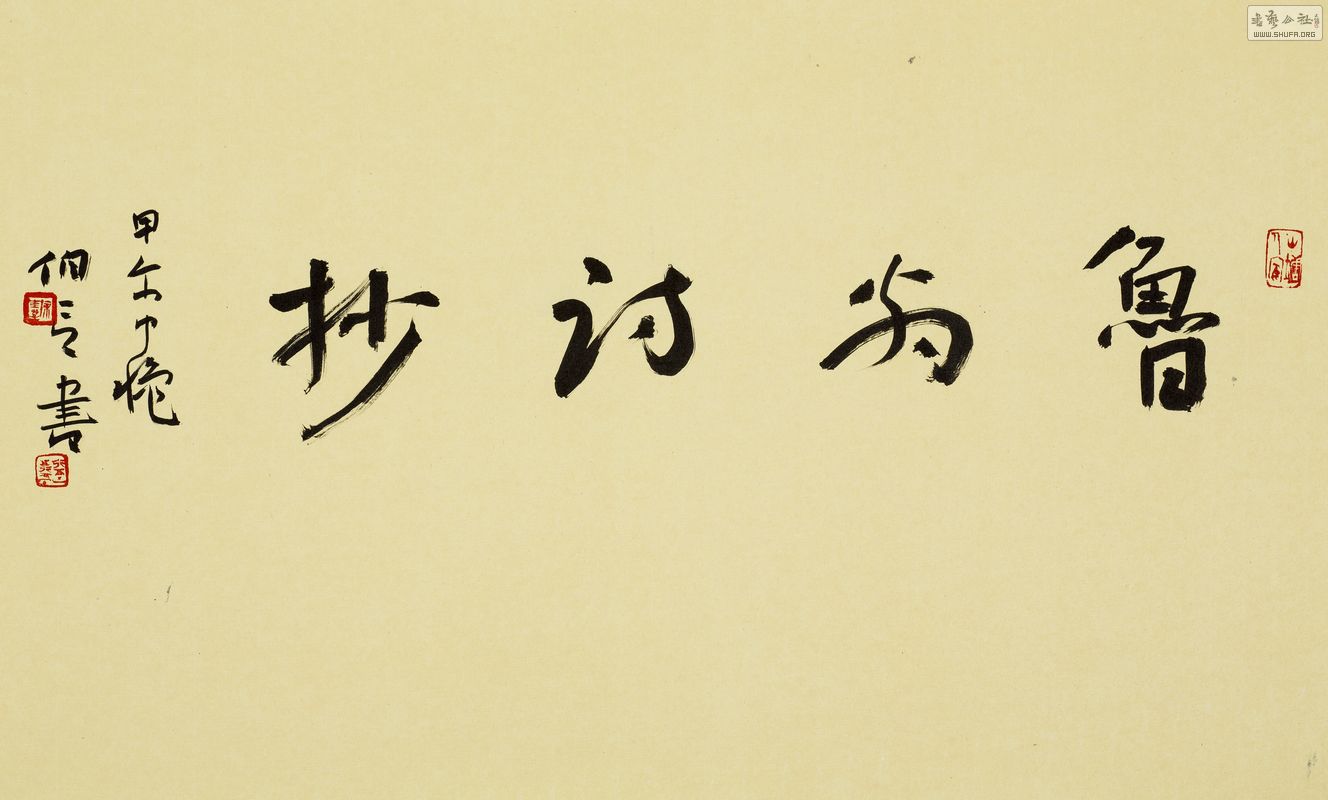 魯翁詩抄
甲午中穐
伯言書
書藝公社
WWW.SHUFA.ORG